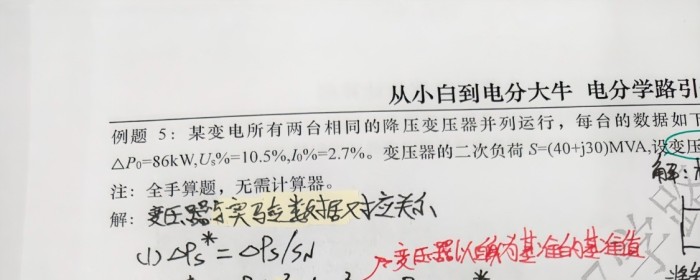 从小白到电分大牛 电分学路引
例题 5：某变电所有两台相同的降压变压器并列运行，每台的数据如下
△P₀=86kW,Uₛ%=10.5%,I₀%=2.7%。变压器的二次负荷 S=(40+j30)MVA,设变压
注：全手算题，无需计算器。
解：
解：变压器与实验数据对应关系
(1) △Pₛ* = △Pₛ/S_N
变压器以自身为基准的基准值
学路